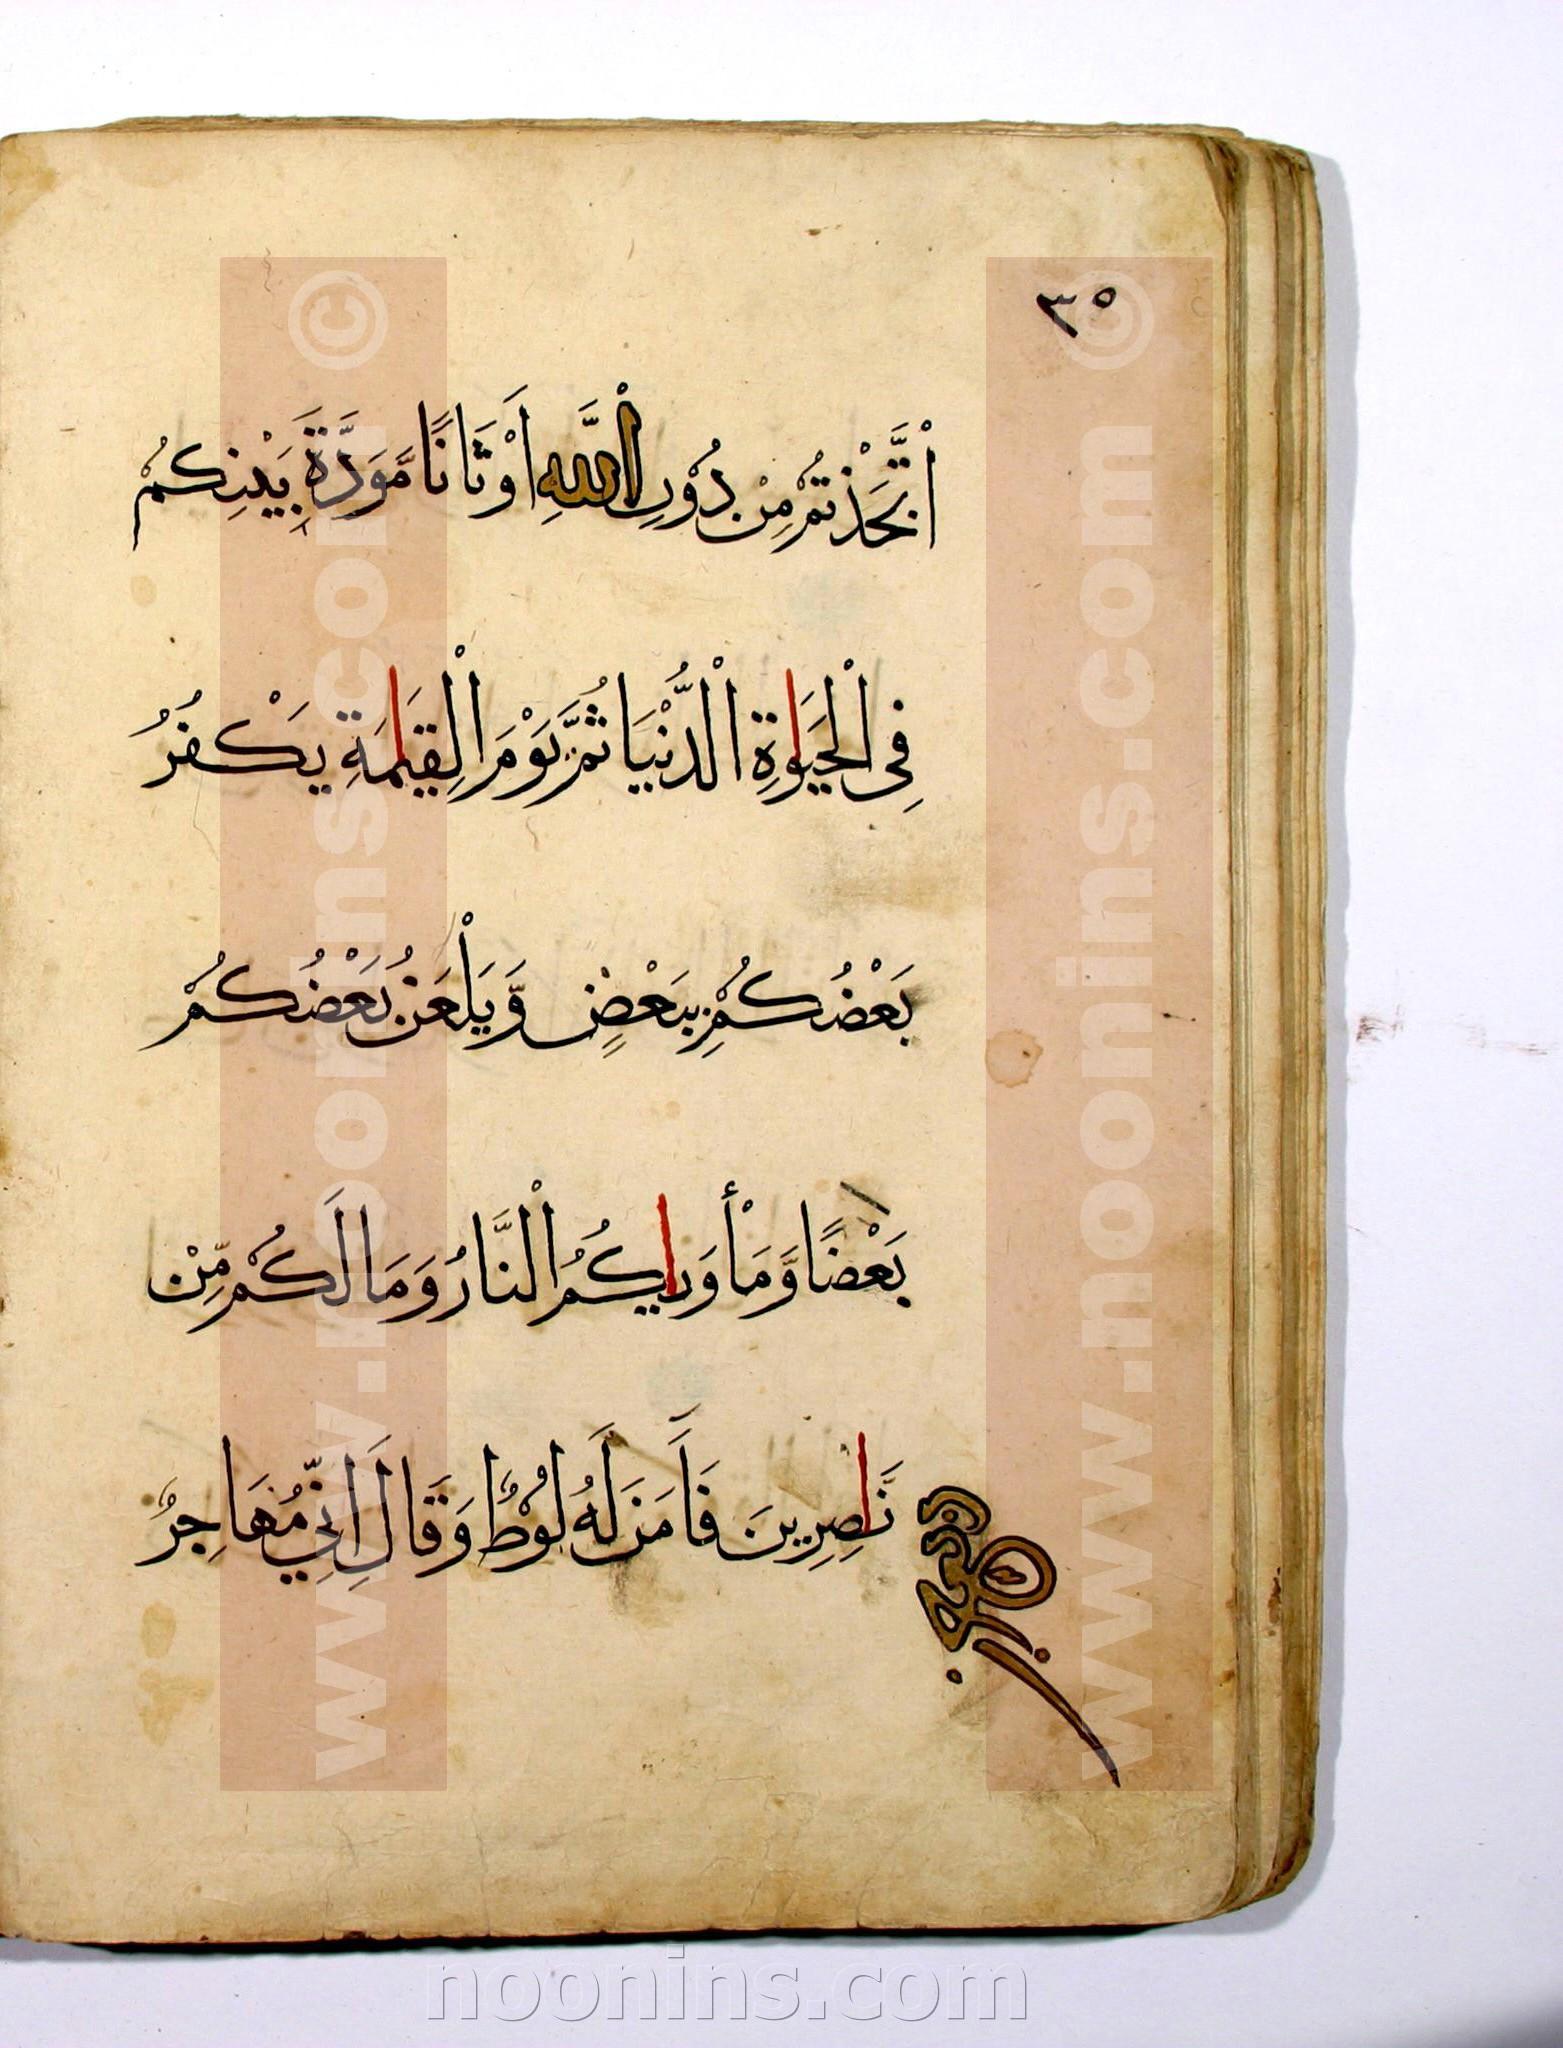 ٣٥
اتَّخَذْتُمْ مِنْ دُوْنِ اللَّهِ اَوْثَانًا مَّوَدَّةَ بَيْنِكُمْ
فِى الْحَيَوٰةِ الدُّنْيَا ثُمَّ يَوْمَ الْقِيٰمَةِ يَكْفُرُ
بَعْضُكُمْ بِبَعْضٍ وَّيَلْعَنُ بَعْضُكُمْ
بَعْضًا وَّمَأْوَىٰكُمُ النَّارُ وَمَا لَكُمْ مِّنْ
نَّاصِرِينَ فَاَمَنَ لَهُ لُوْطٌ وَقَالَ اِنِّي مُهَاجِرٌ
www.noonins.com ©
www.noonins.com ©
noonins.com